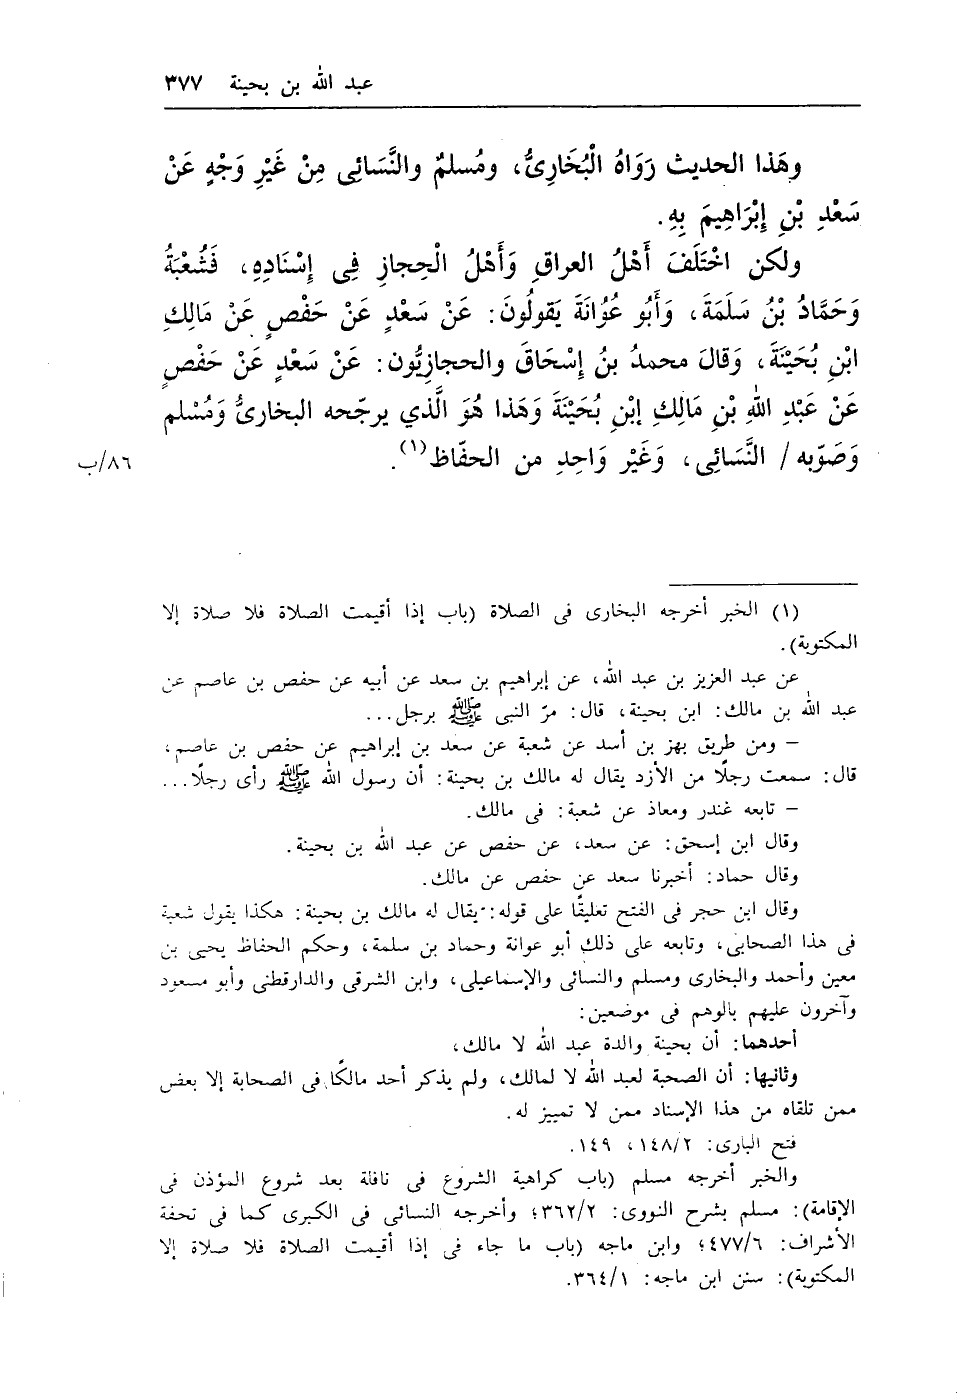 عبد الله بن بحينة ٣٧٧
وهَذا الحديث رَوَاهُ الْبُخَارِىُّ، ومُسلمٌ والنَّسَائِى مِنْ غَيْرِ وَجْهٍ عَنْ
سَعْدِ بْنِ إِبْرَاهِيمَ بِهِ.
ولكن اخْتَلَفَ أَهْلُ العراقِ وَأَهْلُ الْحِجازِ فِى إِسْنَادِهِ، فَشُعْبَةُ
وَحَمَّادُ بْنُ سَلَمَةَ، وَأَبُو عُوَانَةَ يَقولُونَ: عَنْ سَعْدٍ عَنْ حَفْصٍ عَنْ مَالِكِ
ابْنِ بُحَيْنَةَ، وَقالَ محمدُ بنُ إِسْحَاقَ والحجازِيُّون: عَنْ سَعْدٍ عَنْ حَفْصٍ
عَنْ عَبْدِ اللهِ بْنِ مَالِكِ إبْنِ بُحَيْنَةَ وَهَذا هُوَ الَّذي يرجّحه البخارىُّ وَمُسْلم
وَصَوّبه / النَّسَائِى، وَغَيْر وَاحِدِ من الحفّاظ(١).
٨٦/ب
(١) الخبر أخرجه البخارى فى الصلاة (باب إذا أقيمت الصلاة فلا صلاة إلا
المكتوبة).
عن عبد العزيز بن عبد الله، عن إبراهيم بن سعد عن أبيه عن حفص بن عاصم عن
عبد الله بن مالك: ابن بحينة، قال: مرّ النبى ﷺ برجل...
– ومن طريق بهز بن أسد عن شعبة عن سعد بن إبراهيم عن حفص بن عاصم،
قال: سمعت رجلًا من الأزد يقال له مالك بن بحينة: أن رسول الله ﷺ رأى رجلًا...
– تابعه غندر ومعاذ عن شعبة: فى مالك.
وقال ابن إسحق: عن سعد، عن حفص عن عبد الله بن بحينة.
وقال حماد: أخبرنا سعد عن حفص عن مالك.
وقال ابن حجر فى الفتح تعليقًا على قوله: يقال له مالك بن بحينة: هكذا يقول شعبة
فى هذا الصحابى، وتابعه على ذلك أبو عوانة وحماد بن سلمة، وحكم الحفاظ يحيى بن
معين وأحمد والبخارى ومسلم والنسائى والإسماعيلى، وابن الشرقى والدارقطنى وأبو مسعود
وآخرون عليهم بالوهم فى موضعين:
أحدهما: أن بحينة والدة عبد الله لا مالك،
وثانيها: أن الصحبة لعبد الله لا لمالك، ولم يذكر أحد مالكًا فى الصحابة إلا بعض
ممن تلقاه من هذا الإسناد ممن لا تمييز له.
فتح البارى: ١٤٨/٢، ١٤٩.
والخبر أخرجه مسلم (باب كراهية الشروع فى نافلة بعد شروع المؤذن فى
الإقامة): مسلم بشرح النووى: ٣٦٢/٢؛ وأخرجه النسائى فى الكبرى كما فى تحفة
الأشراف: ٤٧٧/٦؛ وابن ماجه (باب ما جاء فى إذا أقيمت الصلاة فلا صلاة إلا
المكتوبة): سنن ابن ماجه: ٣٦٤/١.